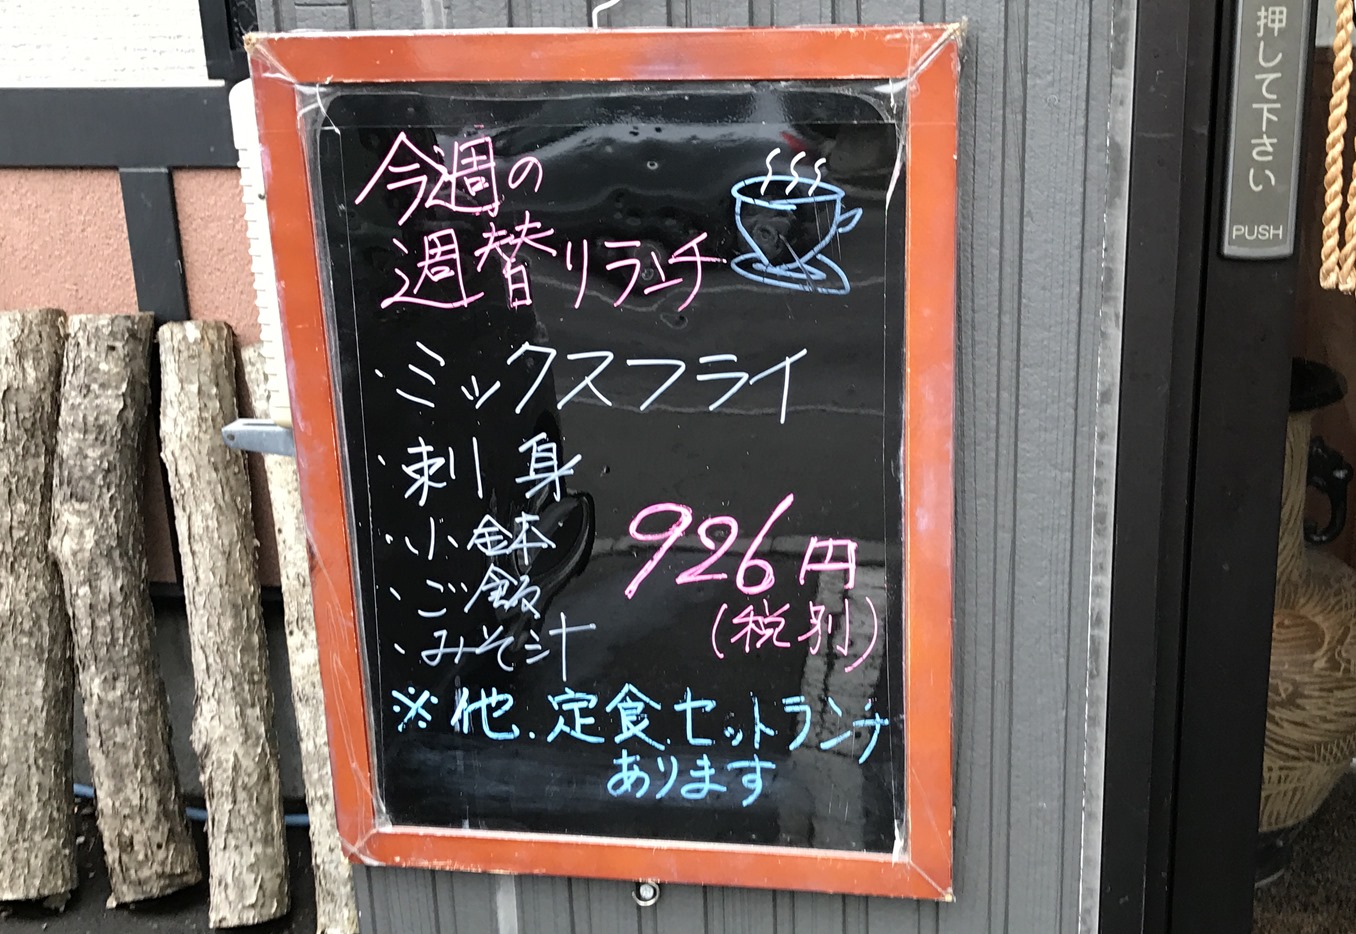 今週の
週替りランチ
・ミックスフライ
・刺身
・小鉢
・ご飯
・みそ汁
926円
(税別)
※他、定食、セットランチ
あります
押して下さい
PUSH